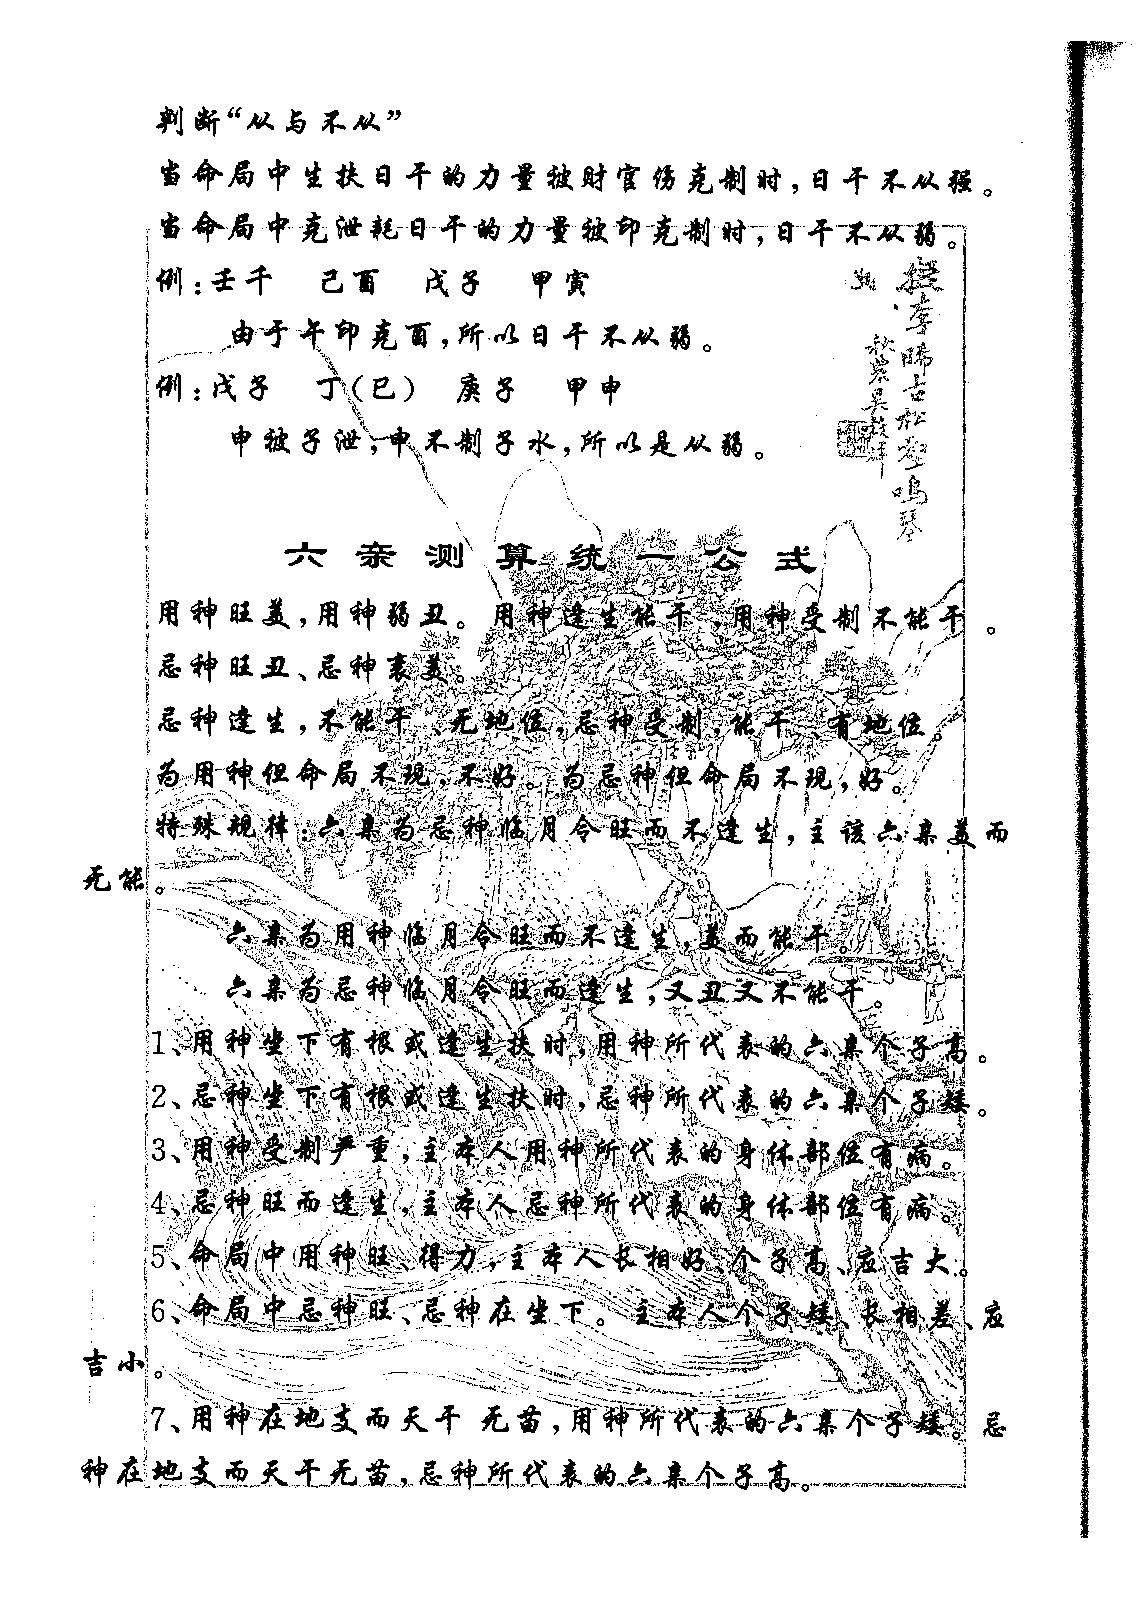 判断“从与不从”
当命局中生扶日干的力量被财官伤克制时，日干不从强。
当命局中克泄耗日干的力量被印克制时，日干不从弱。
例：壬午 己酉 戊子 甲寅
由于午印克酉，所以日干不从弱。
例：戊子 丁（巳） 庚子 甲申
申被子泄，申不制子水，所以是从弱。
六亲测算统一公式
用神旺美，用神弱丑。用神逢生能干，用神受制不能干。
忌神旺丑、忌神衰美。
忌神逢生，不能干、无地位，忌神受制，能干、有地位。
为用神但命局不现，不好。为忌神但命局不现，好。
特殊规律：六亲为忌神临月令旺而不逢生，主该六亲美而
无能。
六亲为用神临月令旺而不逢生，美而能干。
六亲为忌神临月令旺而逢生，又丑又不能干。
1、用神坐下有根或逢生扶时，用神所代表的六亲个子高。
2、忌神坐下有根或逢生扶时，忌神所代表的六亲个子矮。
3、用神受制严重，主本人用神所代表的身体部位有病。
4、忌神旺而逢生，主本人忌神所代表的身体部位有病。
5、命局中用神旺、得力，主本人长相好、个子高、应吉大。
6、命局中忌神旺、忌神在坐下。主本人个子矮、长相差、应
吉小。
7、用神在地支而天干无苗，用神所代表的六亲个子矮。忌
神在地支而天干无苗，忌神所代表的六亲个子高。